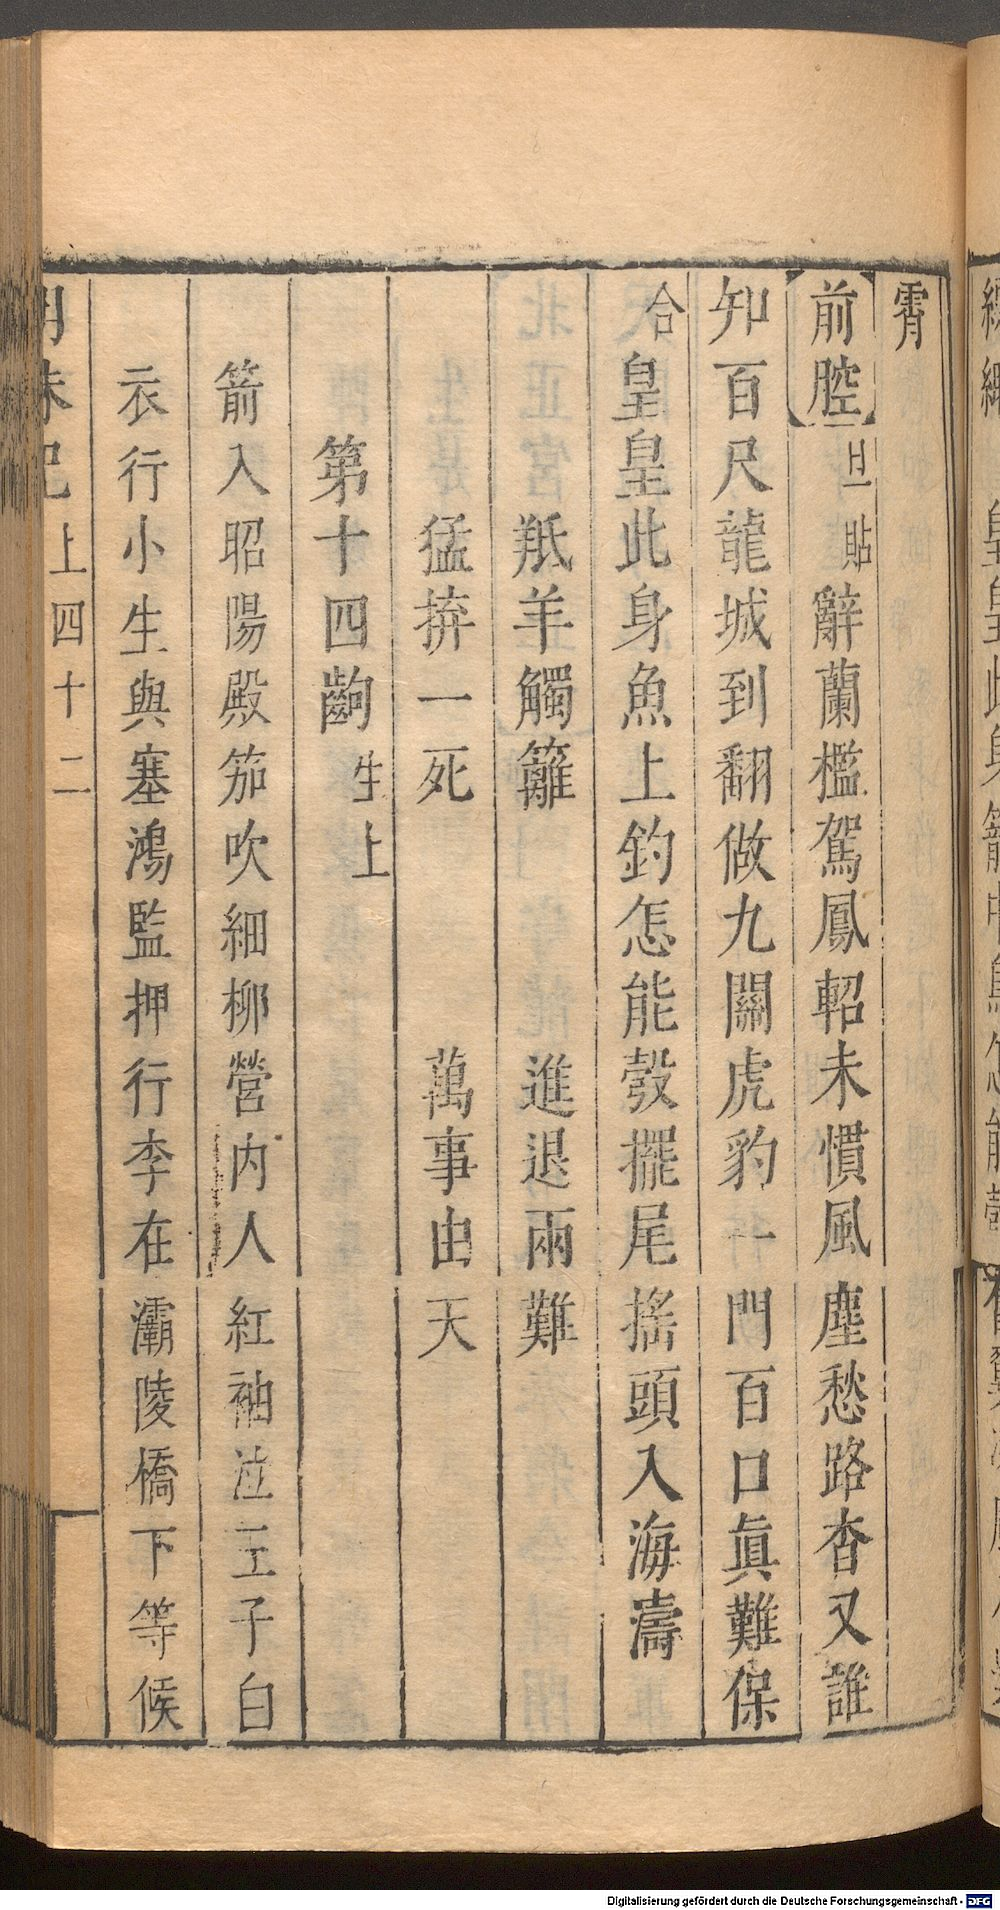 霄
前腔 旦貼 辭蘭檻駕鳳軺未慣風塵愁路杳又誰
知百尺龍城到翻做九關虎豹一門百口眞難保
合皇皇此身魚上釣怎能彀擺尾搖頭入海濤
羝羊觸籬 進退兩難
猛拚一死 萬事由天
第十四齣 生上
箭入昭陽殿笳吹細柳營內人紅袖泣王子白
衣行小生與塞鴻監押行李在灞陵橋下等候
明珠記 上 四十二
Digitalisierung gefördert durch die Deutsche Forschungsgemeinschaft - DFG